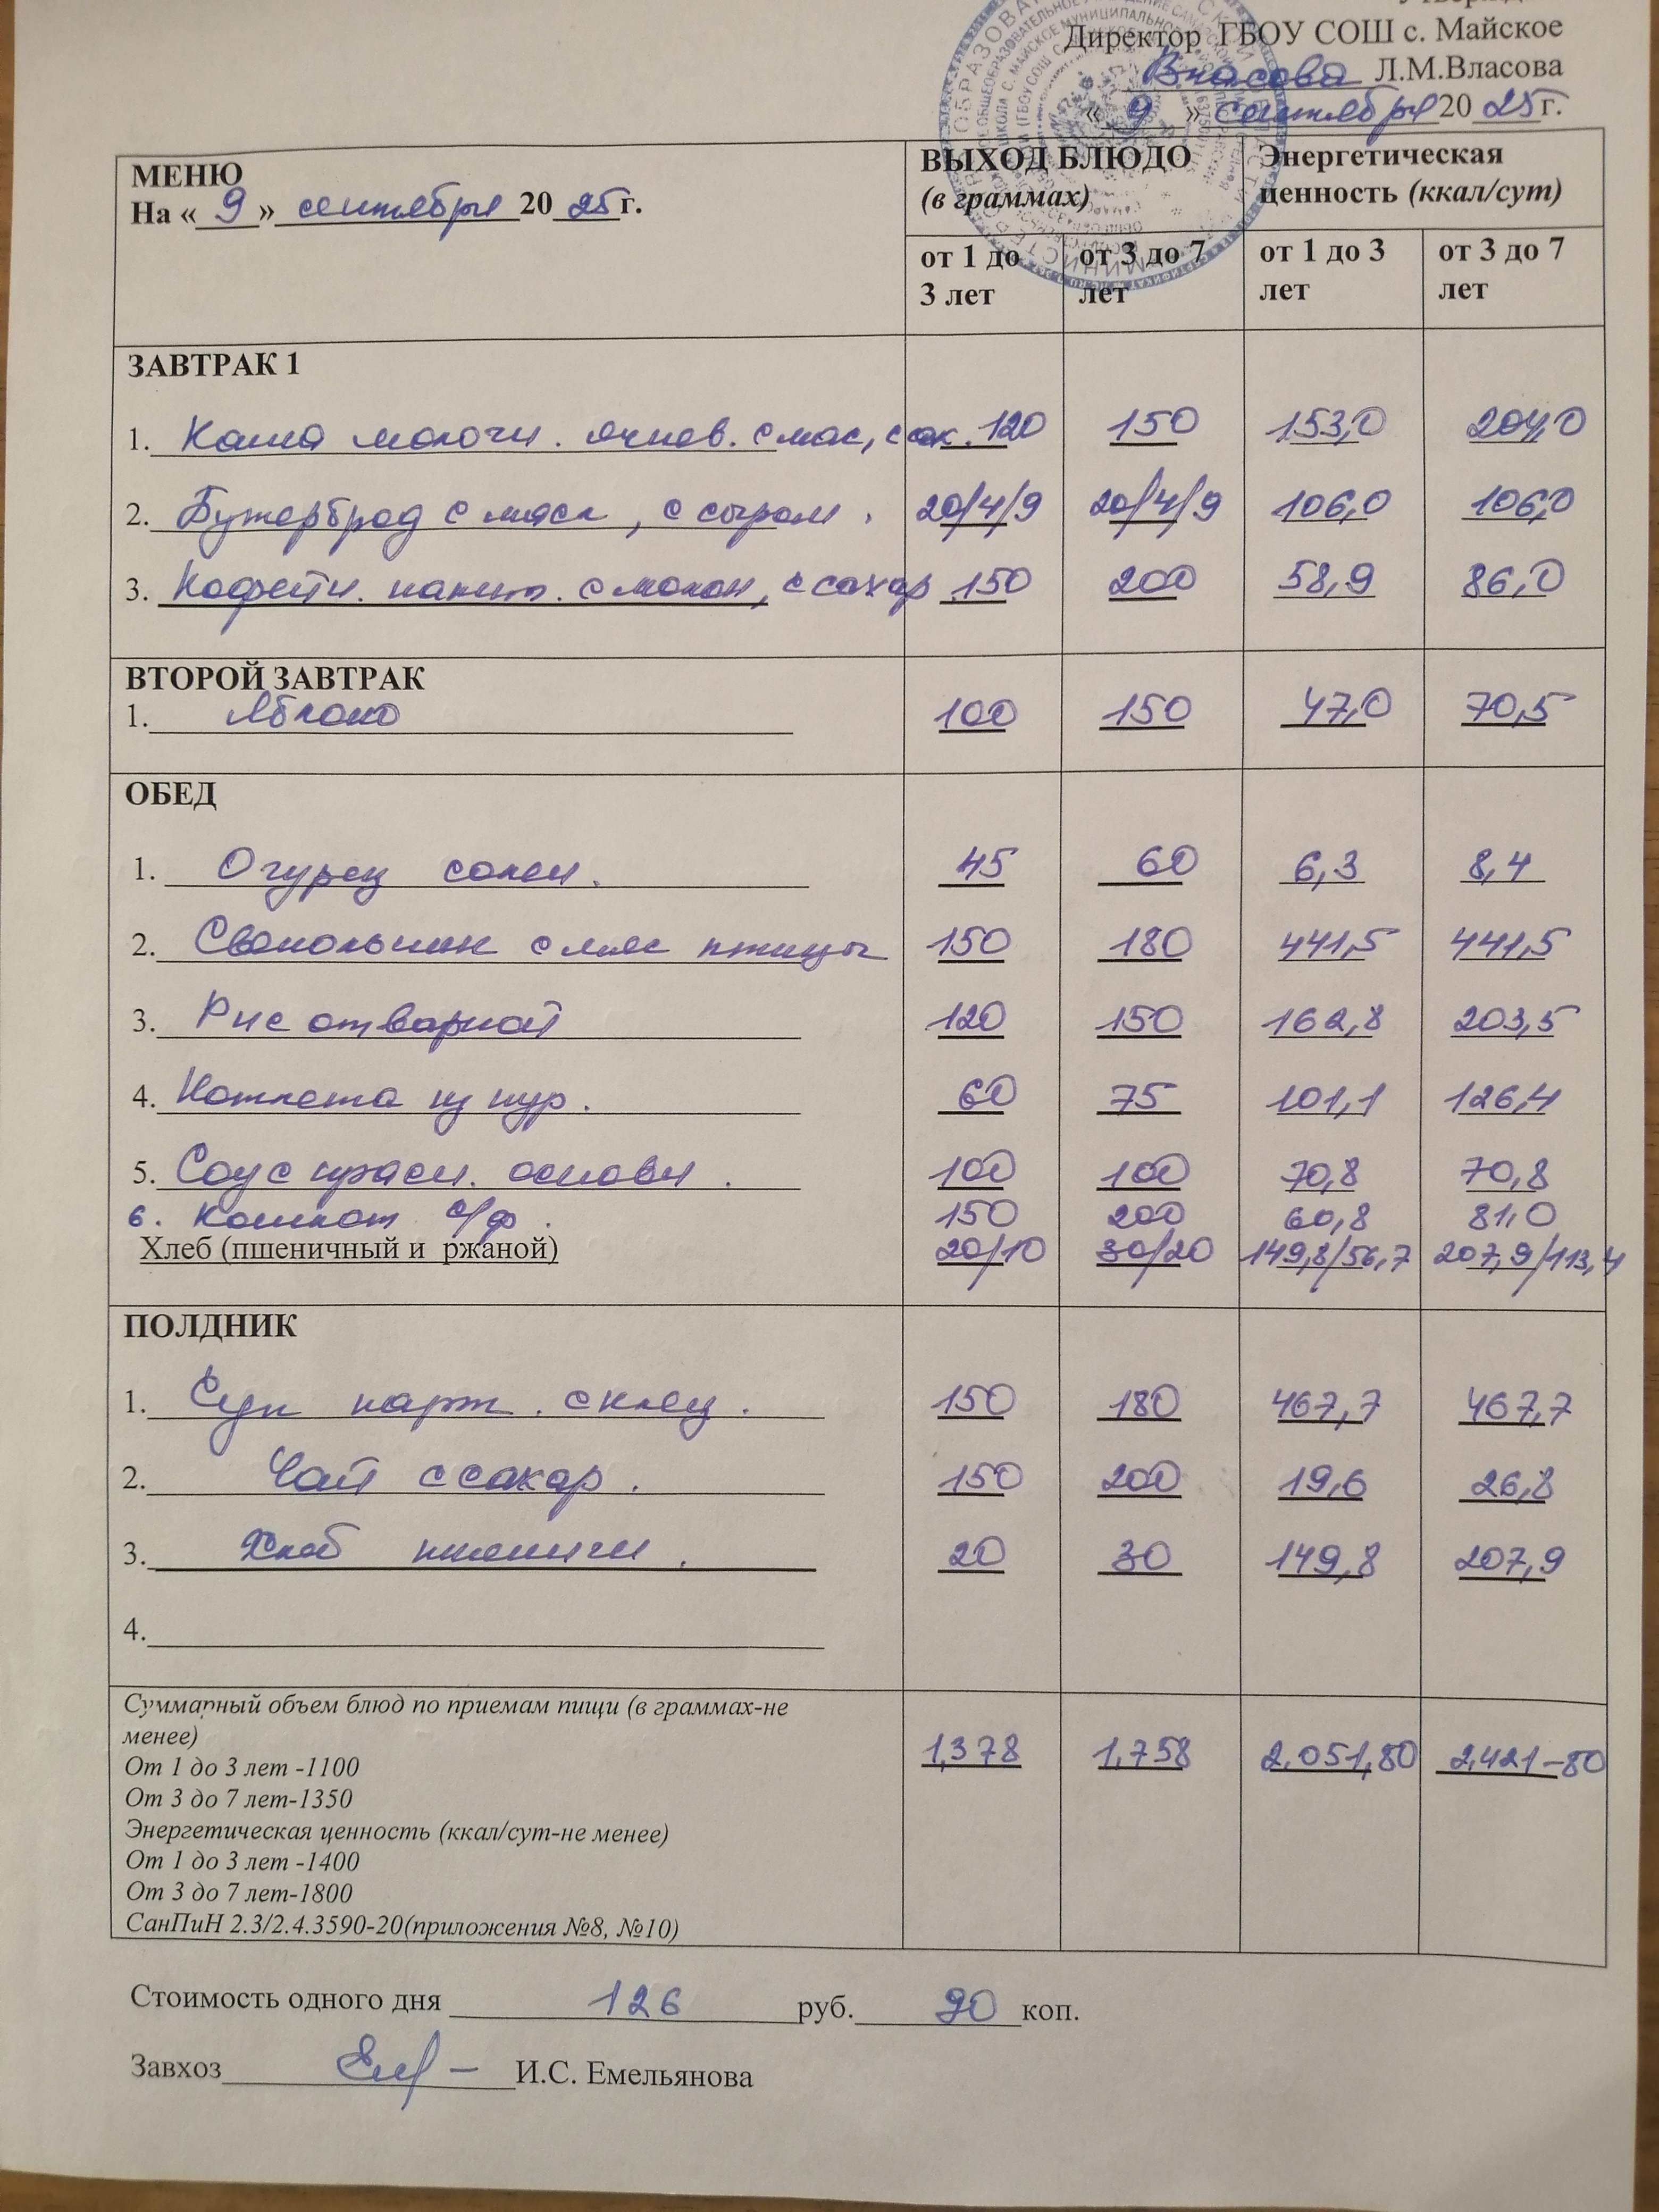 Директор ГБОУ СОШ с. Майское
Власова Л.М.Власова
« 9 » сентября 20 25 г.
МЕНЮ
На « 9 » сентября 20 25 г.
ВЫХОД БЛЮДО
(в граммах)
Энергетическая
ценность (ккал/сут)
от 1 до
3 лет
от 3 до 7
лет
от 1 до 3
лет
от 3 до 7
лет
ЗАВТРАК 1
1. Каша молочн. ячнев. с мас, с сах. 120 150 153,0 204,0
2. Бутерброд с масл, с сыром. 20/4/9 20/4/9 106,0 106,0
3. Кофейн. напит. с молок, с сахар 150 200 58,9 86,0
ВТОРОЙ ЗАВТРАК
1. Яблоко 100 150 47,0 70,5
ОБЕД
1. Огурец солен. 45 60 6,3 8,4
2. Свекольник с мяс птицы 150 180 441,5 441,5
3. Рис отварной 120 150 162,8 203,5
4. Котлета из кур. 60 75 101,1 126,4
5. Соус красн. основн. 100 100 70,8 70,8
6. Компот с/ф. 150 200 60,8 81,0
Хлеб (пшеничный и ржаной) 20/10 30/20 149,8/56,7 207,9/113,4
ПОЛДНИК
1. Суп карт. с клец. 150 180 467,7 467,7
2. Чай с сахар. 150 200 19,6 26,8
3. Хлеб пшеничн. 20 30 149,8 207,9
4.
Суммарный объем блюд по приемам пищи (в граммах-не
менее)
От 1 до 3 лет -1100
От 3 до 7 лет-1350
Энергетическая ценность (ккал/сут-не менее)
От 1 до 3 лет -1400
От 3 до 7 лет-1800
СанПиН 2.3/2.4.3590-20(приложения №8, №10)
1,378 1,758 2.051,80 2,421-80
Стоимость одного дня 126 руб. 90 коп.
Завхоз И.С. Емельянова